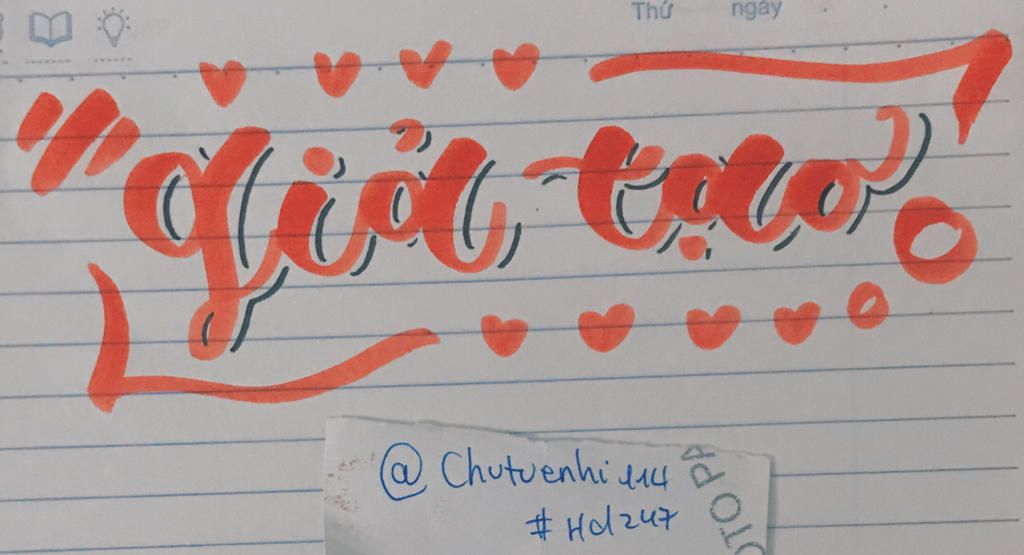 Thứ ngày
giả tạo
@Chutuenhi114
#Hd247
OTO PA